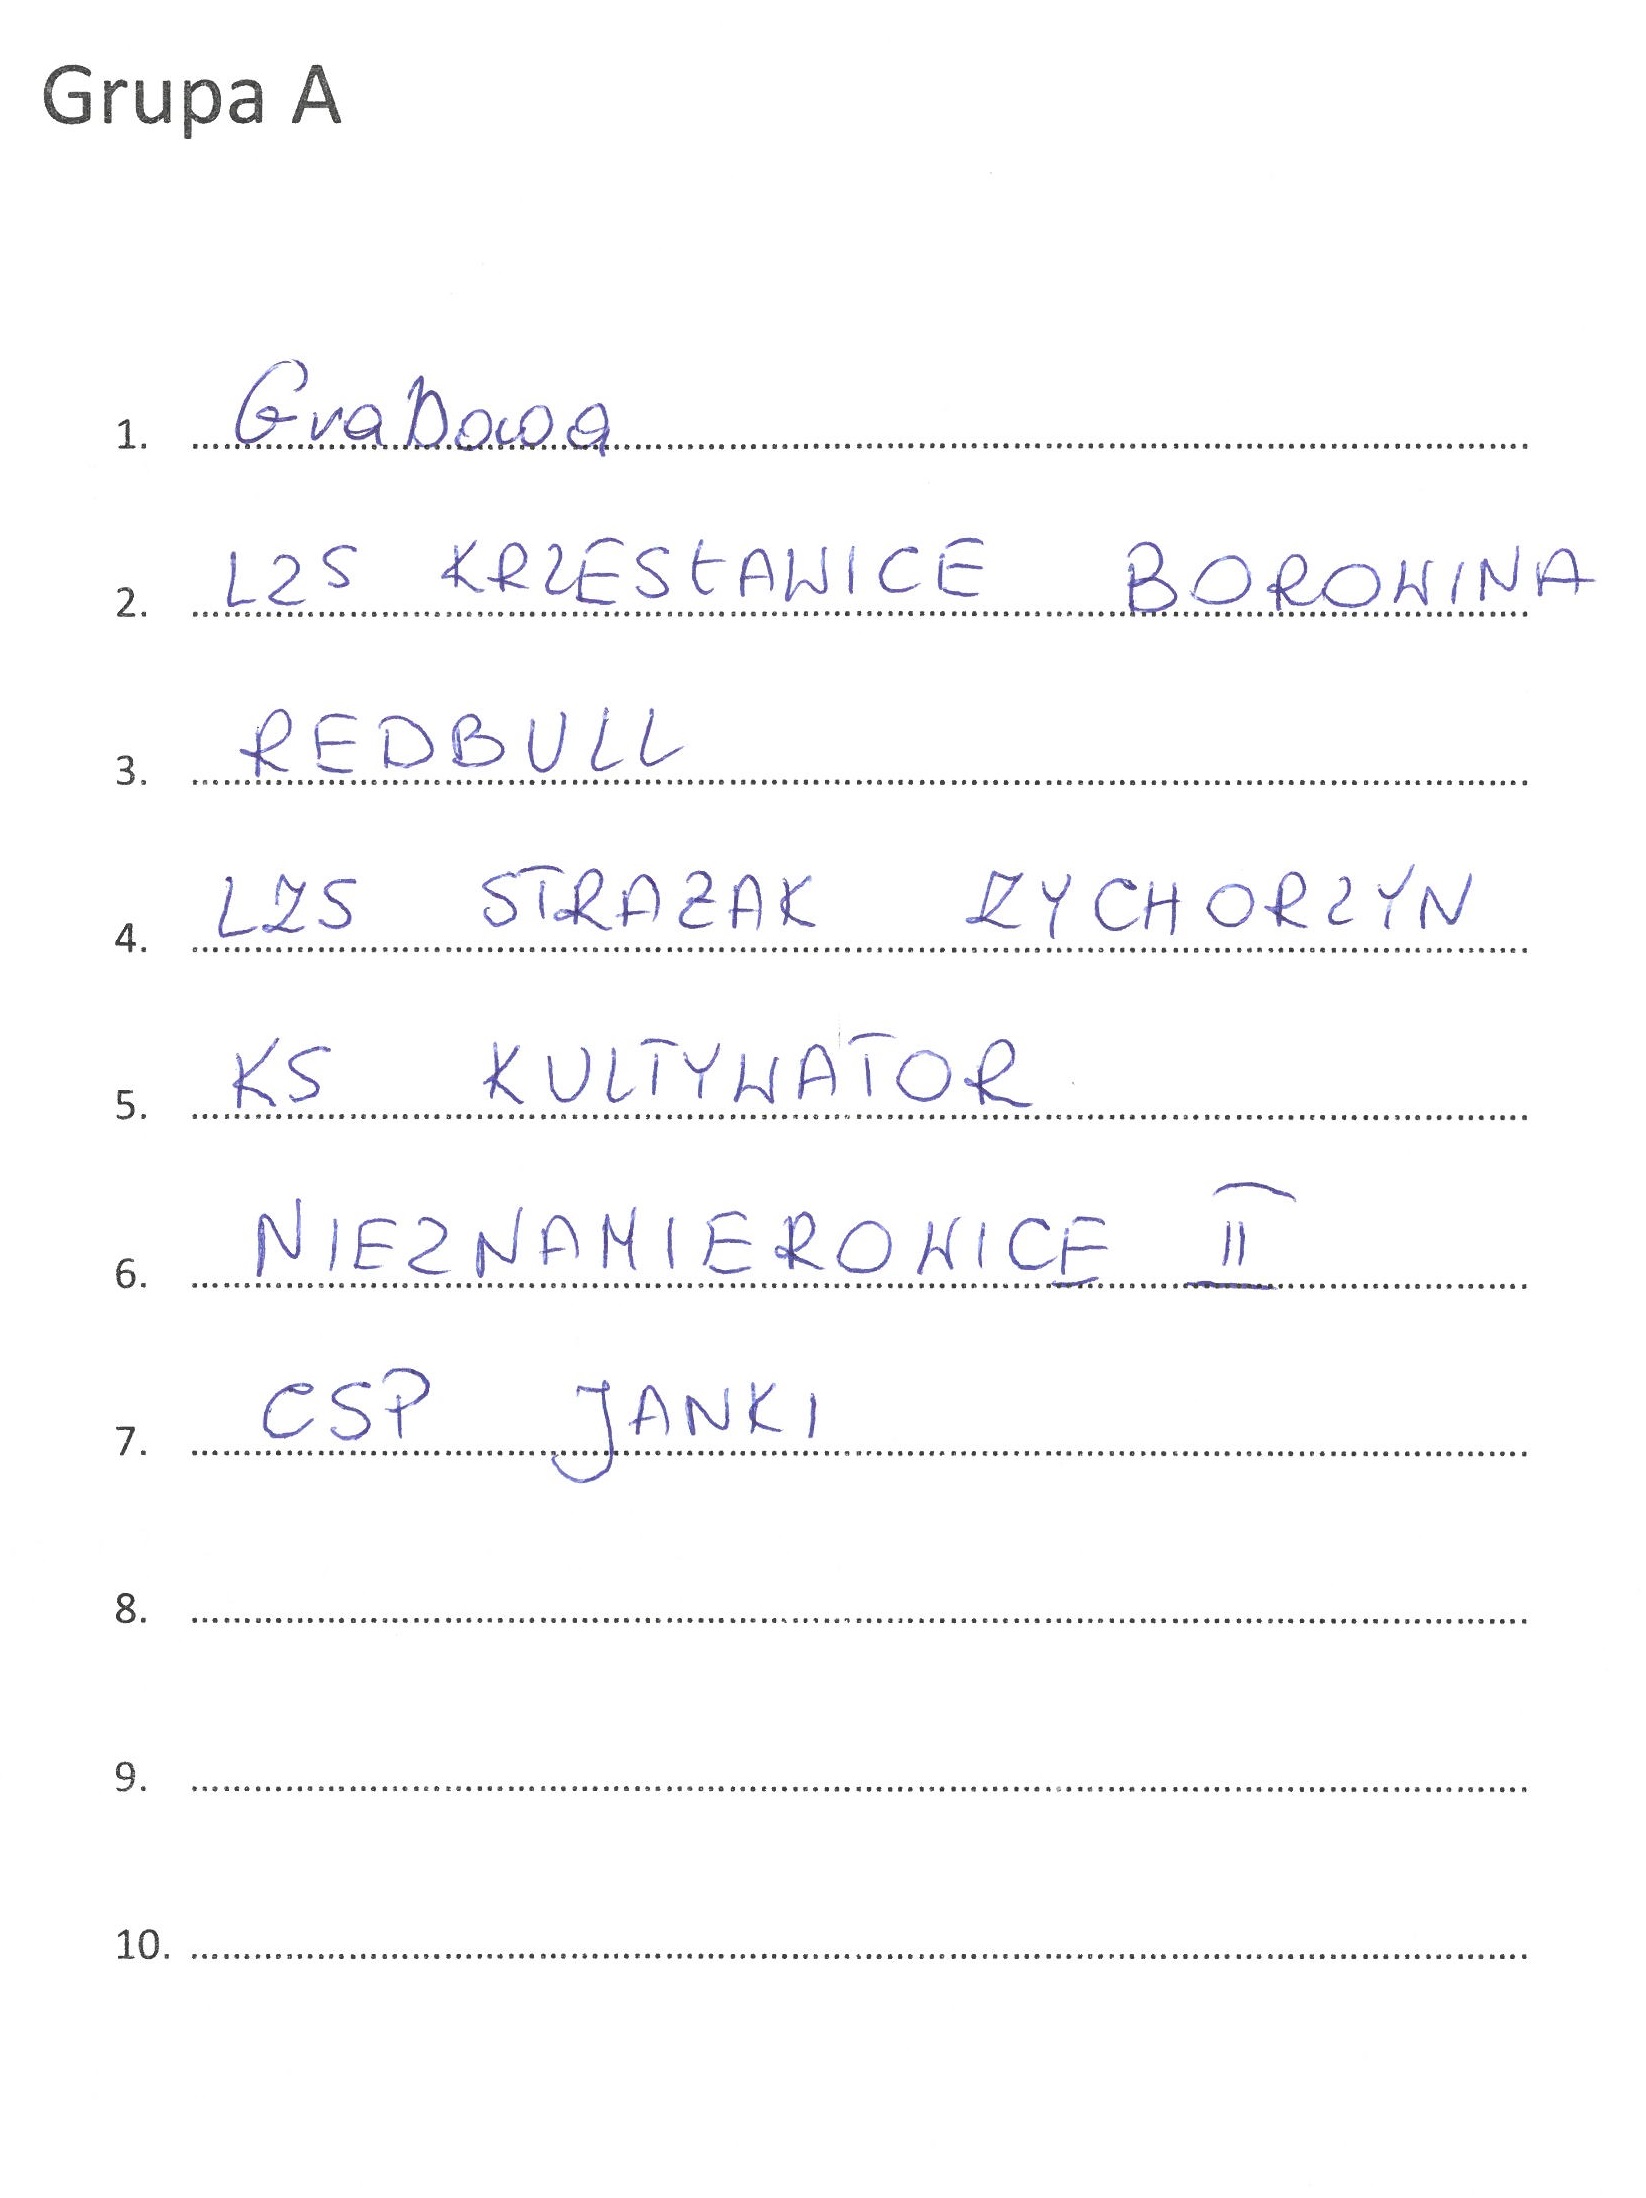 Grupa A
1. Grabowa
2. LZS KRZESŁAWICE BOROWINA
3. REDBULL
4. LZS STRAZAK ZYCHORZYN
5. KS KULTYWATOR
6. NIEZNAMIEROWICE II
7. CSP JANKI
8.
9.
10.